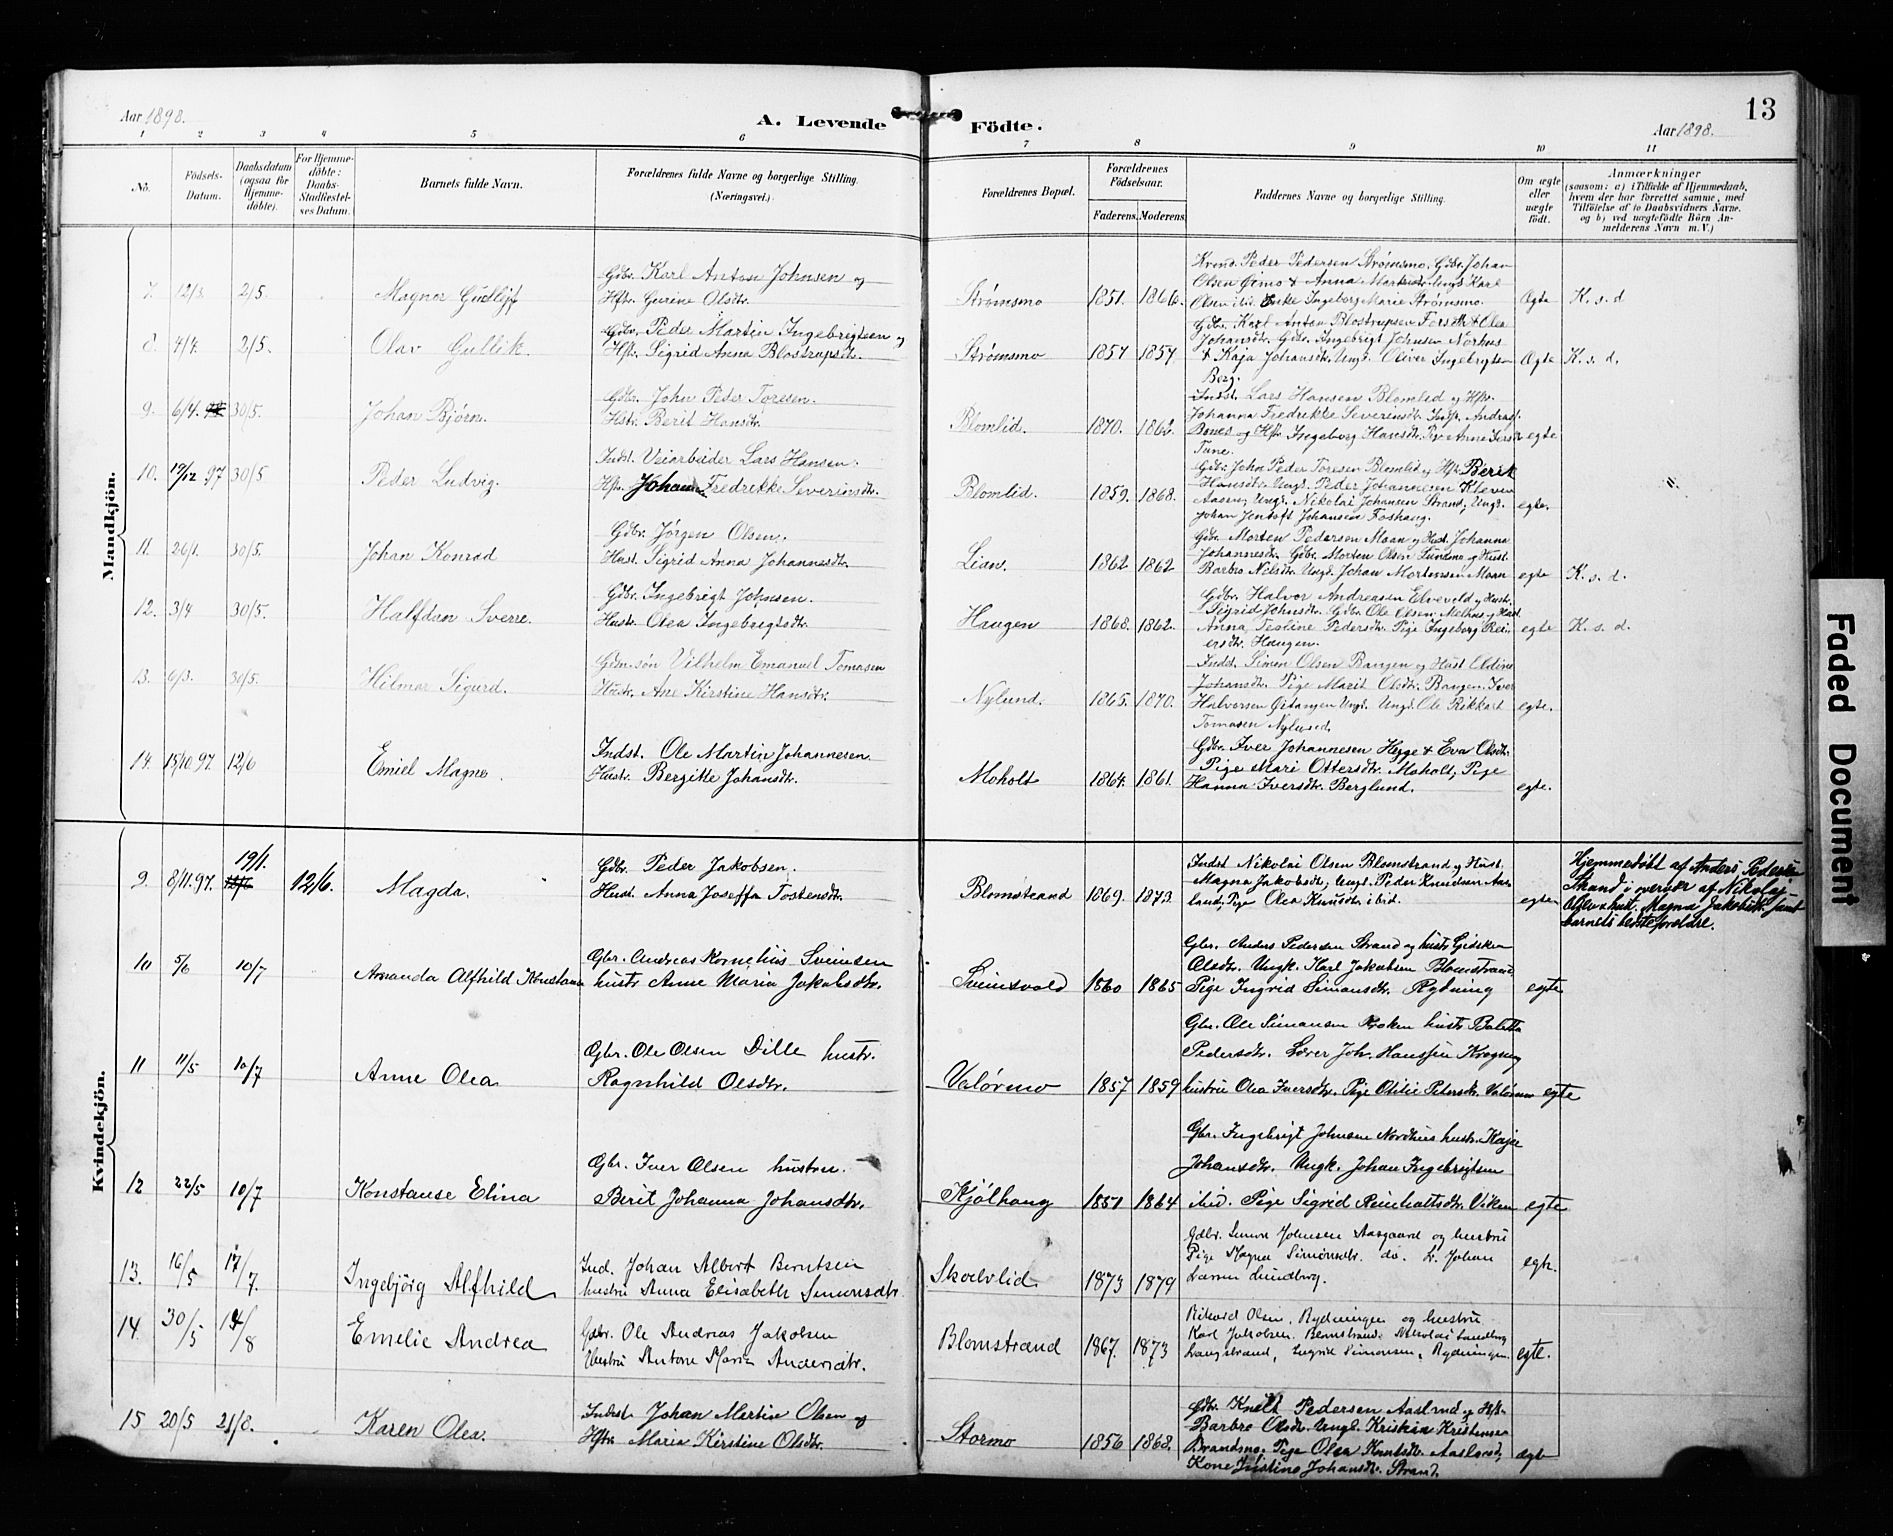 Aar 1898.
A. Levende Födte.
13
Aar 1898.
1 2 3 4 5 6 7 8 9 10 11
No.
Födsels-Datum.
Daabsdatum (ogsaa for Hjemme-döbte).
For Hjemme-döbte: Daabs-Stadfæstelses Datum.
Barnets fulde Navn.
Forældrenes fulde Navne og borgerlige Stilling. (Næringsvei.)
Forældrenes Bopæl.
Forældrenes Födselsaar.
Faderens. Moderens.
Faddernes Navne og borgerlige Stilling.
Om ægte eller uægte födt.
Anmærkninger
(saasom: a) i Tilfælde af Hjemmedaab, hvem der har forrettet samme, med Tilföielse af to Daabsvidners Navne. og b) ved uægtefödte Börn Anmelderens Navn m. V.)
Mandkjön.
7. 12/3. 2/5. Magnor Gudlejf
Gdbr. Karl Anton Johnsen og
Hstr. Gurine Olsdtr.
Strømsmo 1851. 1866.
Kvend. Peder Pedersen Strømsmo. Gdbr. Johan
Olsen Ørmo & Anna Ung. Karl
Olsen ibid. Enke Ingeborg Marie Strømsmo.
Ægte K. s. d
8. 4/4. 2/5. Olav Gullik.
Gdbr. Peder Martin Ingebrigtsen og
Hstr. Sigrid Anna Blostrupsdtr.
Strømsmo 1857 1857
Gdbr. Karl Anton Blostrupsen & Olea
Johansdtr. Gdbr. Ingebrigt Johnsen Norhus
& Kaja Johansdtr. Ungk. Oliver Ingebrigtsen
Berg.
Ægte K. s. d.
9. 6/4. 30/5. Johan Bjørn.
Gdbr. John Peder Toresen.
Hstr. Berit Hansdtr.
Blomlid. 1870. 1862.
Indst. Lars Hansen Blomlid og Hstr.
Johanna Fredrikke Severinsdtr. Indst. Andreas
Bones og Hstr. Ingeborg Hansdtr. Pige Anne
Tune.
egte
10. 19/12 97 30/5. Peder Ludvig.
Indst. Veiarbeider Lars Hansen.
Hstr. Johanna Fredrikke Severinsdtr.
Blomlid. 1859. 1868.
Gdbr. John Peder Toresen Blomlid og Hstr. Berit
Hansdtr. Ungk. Peder Johannesen Kleven
Aasen, Ungk. Nikolai Johansen Strand, Ungk.
Johan Jentoft Johansen Foshaug.
egte.
11. 26/1. 30/5. Johan Konrad
Gdbr. Jørgen Olsen.
Hust. Sigrid Anna Johannesdtr.
Lian. 1862 1862
Gdbr. Morten Pedersen Moan og Hust. Johanna
Johannesdtr. Gdbr. Morten Olsen Sundmo og Hust.
Barbro Nelsdtr. Ungk. Johan Mortensen Moan
egte K. s. d.
12. 3/4 30/5. Halfdan Sverre.
Gdbr. Ingebrigt Johnsen.
Hust. Olea Ingebrigtsdtr.
Haugen 1868. 1862.
Gdbr. Halvor Andreasen Elveveld og Hust.
Sigrid Johnsdtr. Gdbr. Ole Olsen Melhus og Hust
Anna Tesline Pedersdtr. Pige Ingeborg Rein-
ersdtr. Haugen.
egte K. s. d.
13. 6/3. 30/5. Hilmar Sigurd.
Gdm.søn Vilhelm Emanuel Tomasen
Hust. Ane Kirstine Hansdtr.
Nylund. 1865. 1870.
Indst. Simon Olsen Bangen og Hust. Oldine
Johansdtr. Pige Marit Olsdtr. Bangen. Iver
Halvorsen Ungk. Ungk. Ole Rikkart
Tomasen Nylund
egte.
14. 15/10. 97. 12/6 Emiel Magne.
Indst. Ole Martin Johannesen
Hustr. Bergitte Johansdtr.
Moholt 1864. 1861.
Gdbr. Iver Johannesen Hegge & Eva Olsdtr.
Pige Mari Ottersdtr. Moholt, Pige
Hanna Iversdtr. Berglund.
egte.
Kvindekjön.
9. 8/11. 97. 19/1. 12/6. Magda.
Gdbr. Peder Jakobsen.
Hust. Anna Joseffa Tostensdtr.
Blomstrand 1869. 1873.
Indst Nikolai Olsen Blomstrand og Hust.
Magna Jakobsdtr, Ungk. Peder Knudsen Aas-
land, Pige Olea Knusdtr. ibid.
egte
Hjemmedøbt af Anders Pedersen
Strand i overvær af Nikolaj
Olsen & hust. Magna Jakobsdtr. samt
barnets bedsteforeldre.
10 5/6 10/7 Amanda Alfhild Konstanse
Gbr. Andreas Kornelius Sveinsen
hustr Anne Maria Jakobsdtr.
Sveinsvold 1860 1865
Gbr. Anders Pedersen Strand og hustr Gidsken
Olsdtr. Ungk. Karl Jakobsen Blomstrand
Pige Ingrid Simonsdtr. Rydning
egte
11 11/5 10/7 Anne Olea
Gbr. Ole Olsen Dille hustr.
Ragnhild Olsdtr.
Valørmo 1857 1859
Gbr. Ole Simonsen Kroken hustr Baletta
Pedersdtr. Lærer Joh. Hanssen Krogsng
hustru Olea Iversdtr. Pige Otilie Petersdr. Valørmo
egte
12 22/5 10/7 Konstanse Elina
Gbr. Iver Olsen hustru.
Berit Johanna Johansdtr.
Kjølhaug 1851 1864
Gbr. Ingebrigt Johnsen Nordhus hustr. Kaja
Johansdtr. Ungk. Johan Ingebrigtsen
ibid. Pige Sigrid Reinholtsdtr. Viken
egte
13. 16/5 17/7 Ingebjörg Alfhild
Ind. Johan Albert Berntsen
hustru Anna Elisabeth Simonsdtr
Skoelvlid 1873 1879
Gdbr. Simon Johnsen Aasgaard og hustru
Pige Magna Simonsdtr. do. L. Johan
Larsen Lundberg.
egte.
14. 30/5 14/8 Emelie Andrea
Gdbr. Ole Andreas Jakobsen
Hustru Antone Maria Andersdtr.
Blomstrand 1867. 1873
Rikard Olsen, Rydningen og hustru
Karl Jakobsen Blomstrand. Nikolai Sandberg
Langstrand, Ingrid Simonsen, Rydningen.
egte.
15 20/5 21/8. Karen Olea.
Indst. Johan Martin Olsen og
Hstr. Maria Kirstine Olsdtr.
Stormo 1856 1868.
Gdbr. Knut Pedersen Aaslund og Hstr.
Barbro Olsdtr. Ungk. Kristian Kristensen
Brandsmo. Pige Olea Knutsdtr. Aaslund,
Kone Justine Johansdtr. Strand.
egte
Faded Document